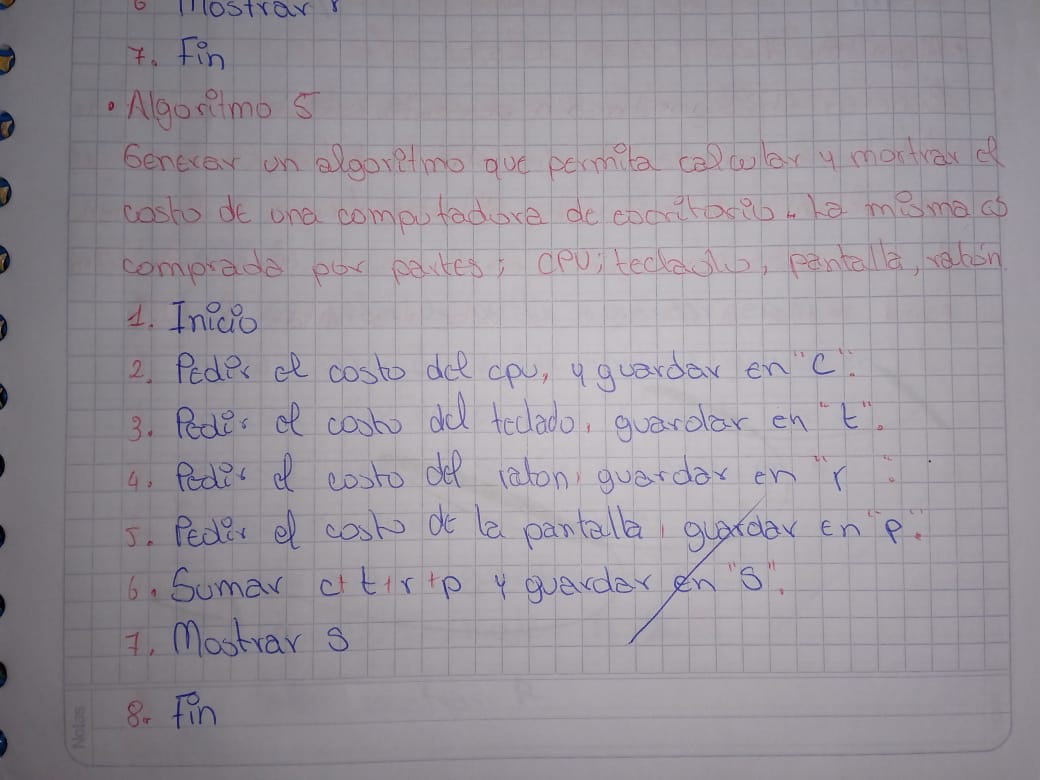 6 Mostrar r
7. Fin
• Algoritmo 5
Generar un algoritmo que permita calcular y mostrar el
costo de una computadora de escritorio. La misma es
comprada por partes; CPU; teclado, pantalla, ratón
1. Inicio
2. Pedir el costo del cpu, y guardar en "C".
3. Pedir el costo del teclado, guardar en "t".
4. Pedir el costo del raton, guardar en "r".
5. Pedir el costo de la pantalla, guardar en "p".
6. Sumar c+t+r+p y guardar en "S".
7. Mostrar S
8. Fin
Notas